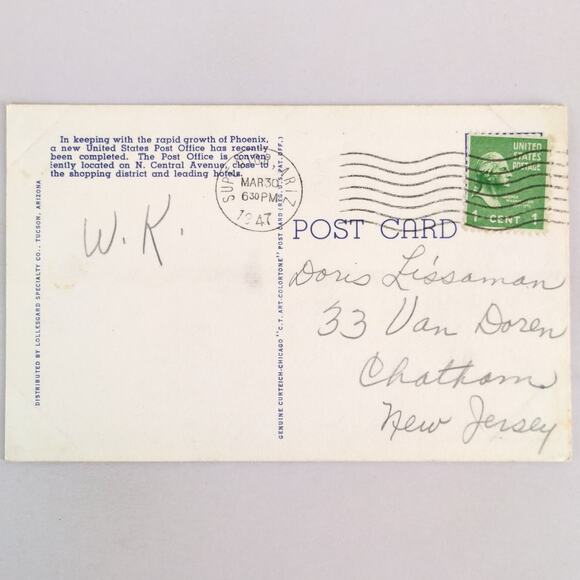 In keeping with the rapid growth of Phoenix,
a new United States Post Office has recently
been completed. The Post Office is conven-
iently located on N. Central Avenue, close to
the shopping district and leading hotels.
ARIZ
MAR 30
6 30 PM
1947
UNITED
STATES
POSTAGE
1 CENT 1
W. K.
POST CARD
Doris Lissaman
33 Van Doren
Chatham
New Jersey
DISTRIBUTED BY LOLLESGARD SPECIALTY CO., TUCSON, ARIZONA
GENUINE CURTEICH-CHICAGO "C.T. ART-COLORTONE" POST CARD (REG. U.S. PAT. OFF.)